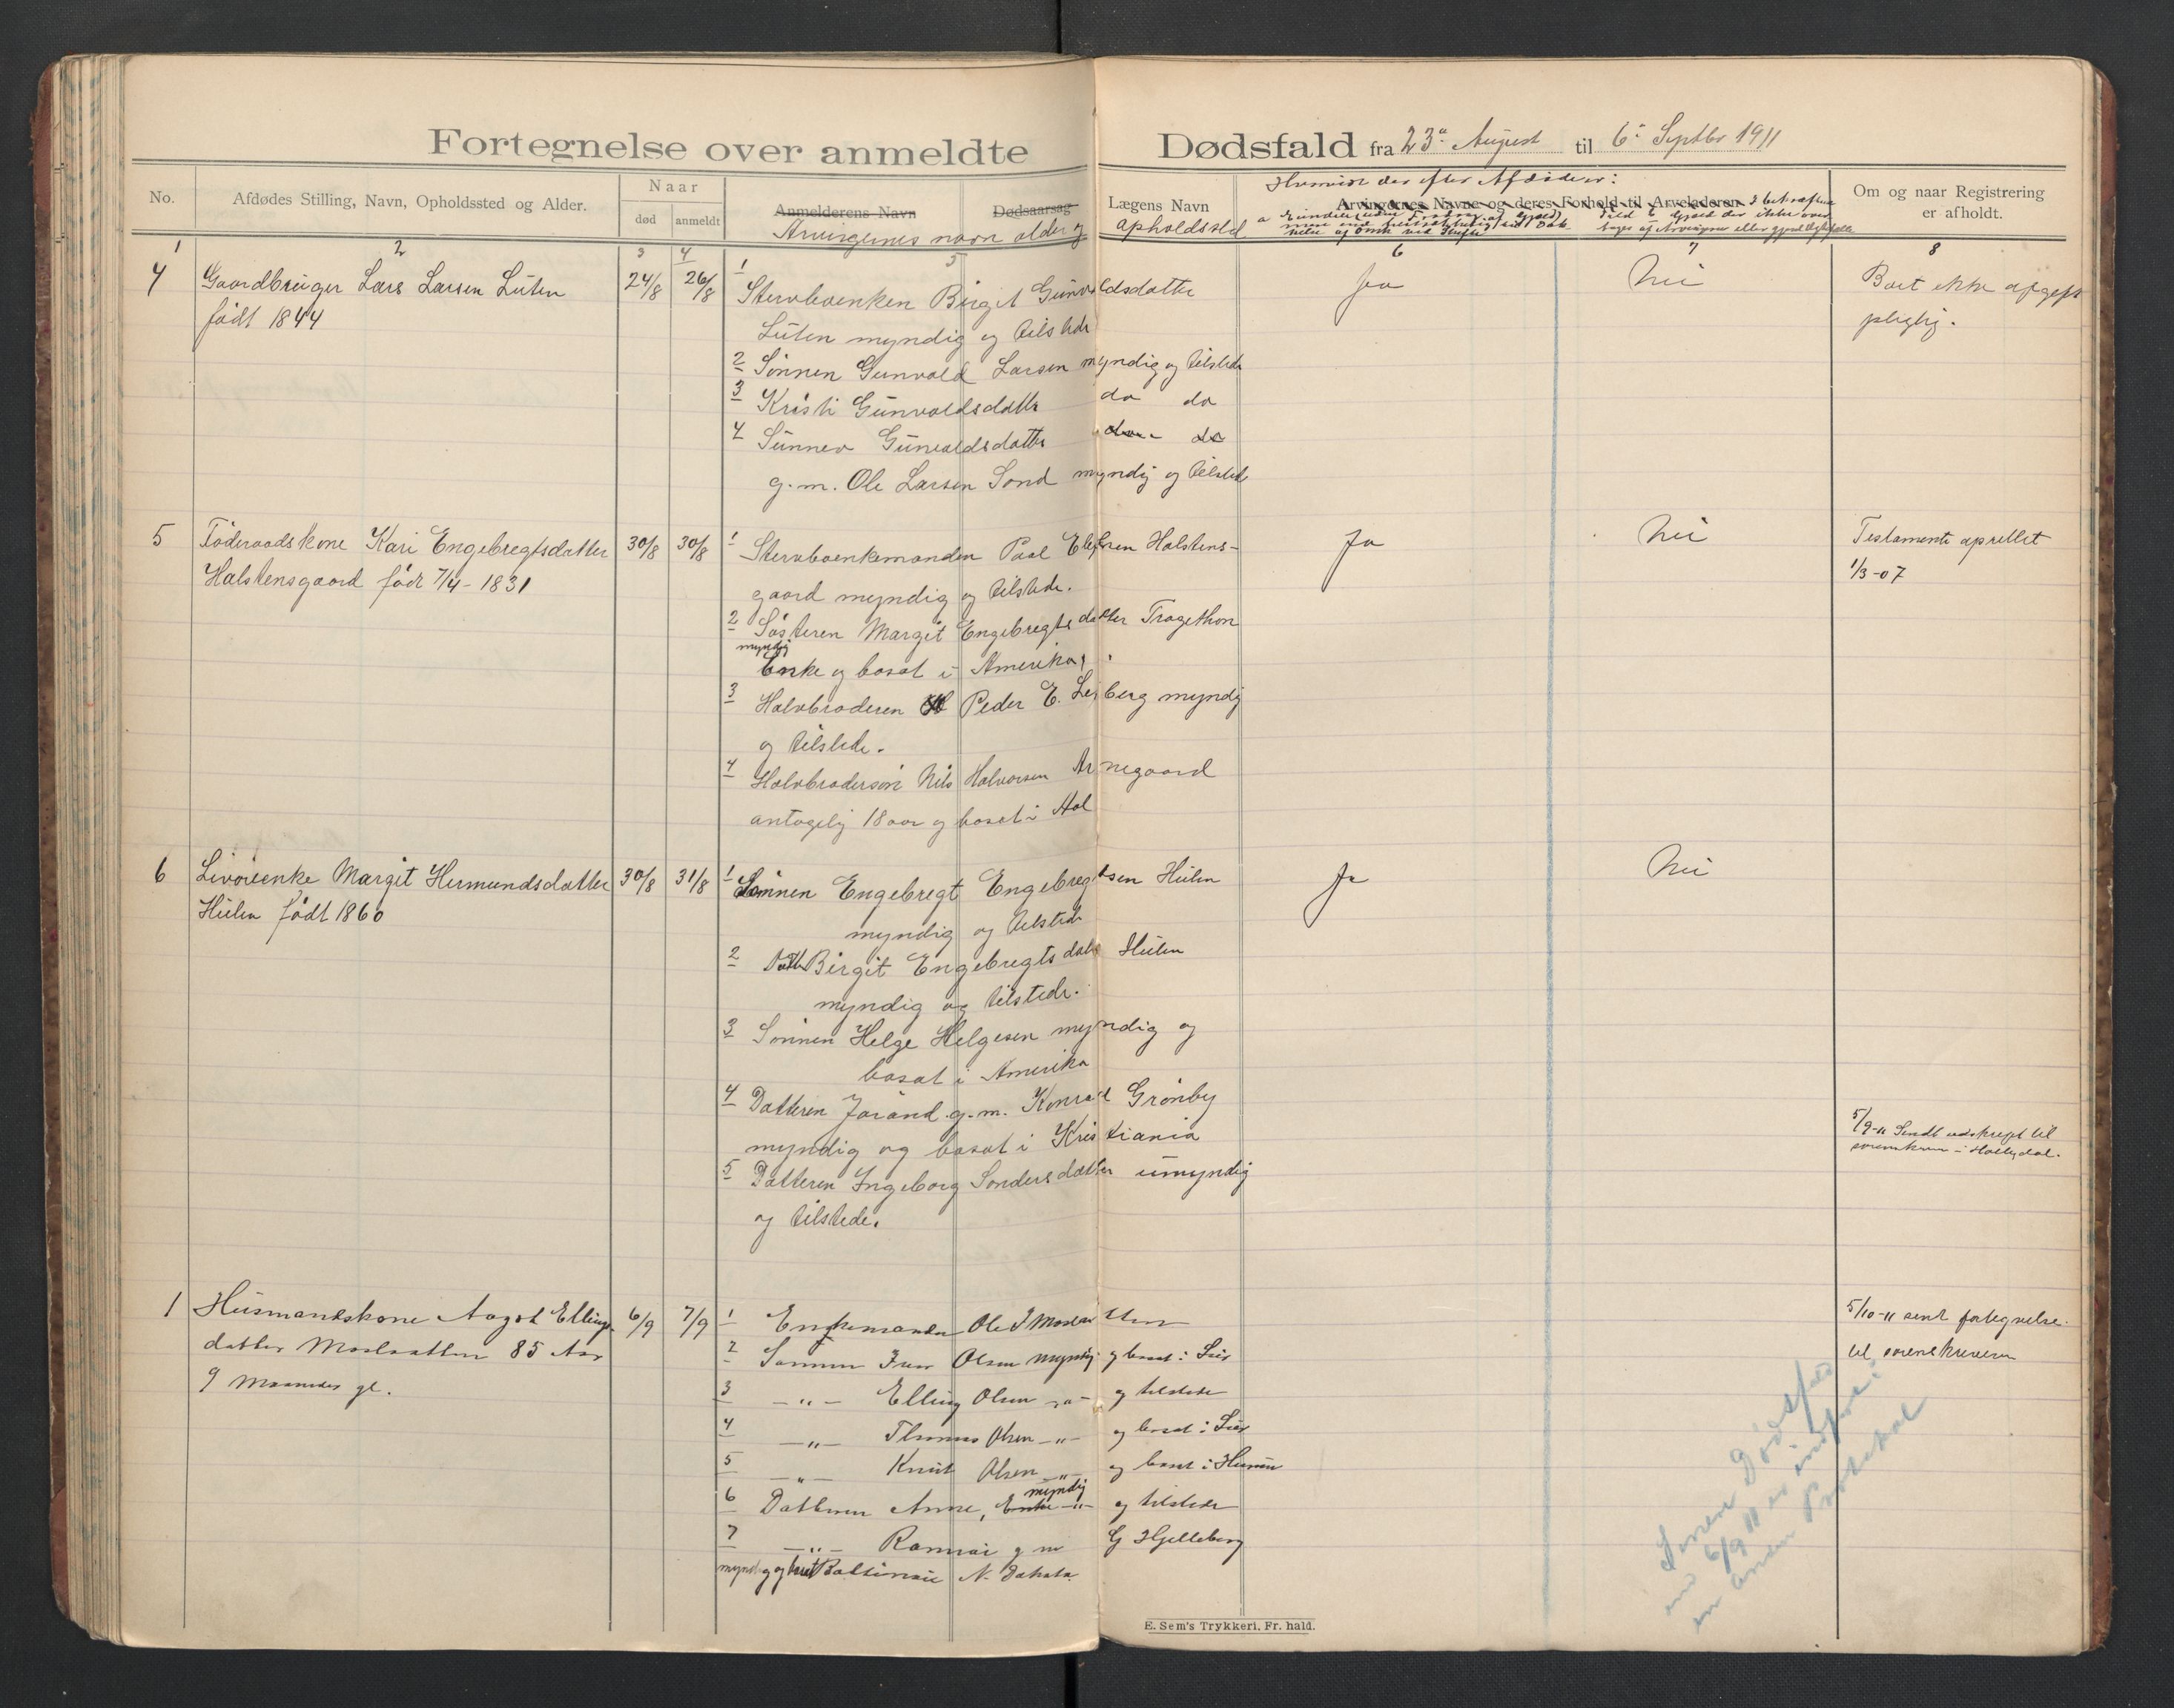 Fortegnelse over anmeldte Dødsfald fra 23de August til 6te Septbr 1911
No.
Afdødes Stilling, Navn, Opholdssted og Alder.
Naar
død
anmeldt
Anmelderens Navn
Dødsaarsag
Arvingernes navn alder og
Lægens Navn
opholdssted
Hvorvidt der efter Afdøde er:
Arvingernes Navne og deres Forhold til Arveladeren
Om og naar Registrering
er afholdt.
1 2 3 4 5 6 7 8
4
Gaardbruger Lars Larsen Luten
født 1844
24/8
26/8
1 Stervboenken Birgit Gunvaldsdatter
Luten myndig og tilstede
2 Sønnen Gunvald Larsen myndig og tilstede
3 Kristi Gunvaldsdatter do do
4 Sunnev Gunvaldsdatter do
g.m. Ole Larsen Sond myndig og tilstede
Ja
Nei
Boet ikke afgift
pligtig.
5
Føderaadskone Kari Engebregtsdatter
Halstensgaard født 7/4 - 1831
30/8
30/8
1 Stervboenkemanden Paal Halstens-
gaard myndig og tilstede.
2 Søsteren Margit Engebregtsdatter Tragethon
myndig
Enke og bosat i Amerika
3 Halvbroderen Peder E. myndig
og tilstede.
4 Halvbrodersøn Nils Halvorsen Arnegaard
antagelig 18 aar og bosat i Hol
Ja
Nei
Testamente oprettet
1/3-07
6
Enke Margit Hermundsdatter
Hulen født 1860
30/8
31/8
1 Sønnen Engebregt Engebregtsen Hulen
myndig og tilstede
2 Datt Birgit Engebregtsdatter Hulen
myndig og tilstede.
3 Sønnen Helge Helgesen myndig og
bosat i Amerika
4 Datteren Jorand g.m. Konrad Grønby
myndig og bosat i Kristiania
5 Datteren Ingeborg Sondersdatter umyndig
og tilstede.
Ja
Nei
5/9-11 Sendt udskrift til
sorenskriv. i Hallingdal.
1
Husmandskone Aagot Ellings-
datter Moslaatten 85 Aar
9 Maaneder gl.
6/9
7/9
1 Enkemanden Ole I Moslaatten
2 Sønnen Iver Olsen myndig og bosat i Lier
3 -"- Elling Olsen -"- og tilstede
4 -"- Thomas Olsen -"- og bosat i Lier
5 -"- Knut Olsen -"- og bosat i Hurum
myndig
6 Datteren Anne, Enke -"- og tilstede
7 -"- g m G Hjelleberg
myndig og bosat N. Dakota
5/10-11 sent fortegnelse
til sorenskriveren
Dødsfald
6/9 11 er indført
Protokol
E. Sem's Trykkeri, Fr. hald.